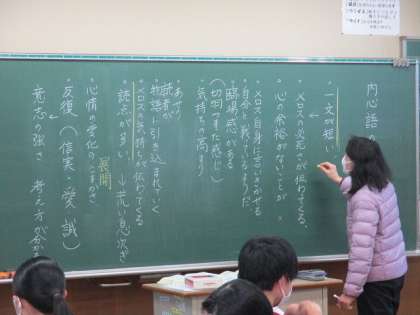 内心語
・一文が短い
・メロスの必死さが伝わってくる、
心の余裕がないことが
・メロス自身に言いきかせる
・自分と戦っているようだ
・臨場感がある
(切羽つまった感じ)
・気持ちの高まり
あせり
読者が
物語に引き込まれていく
・メロスの気持ちが伝わってくる
・読点が多い。→荒い息づぎ
展開
・心情の変化の
・反復(信実・愛・誠)
意志の強さ 考え方が分かる